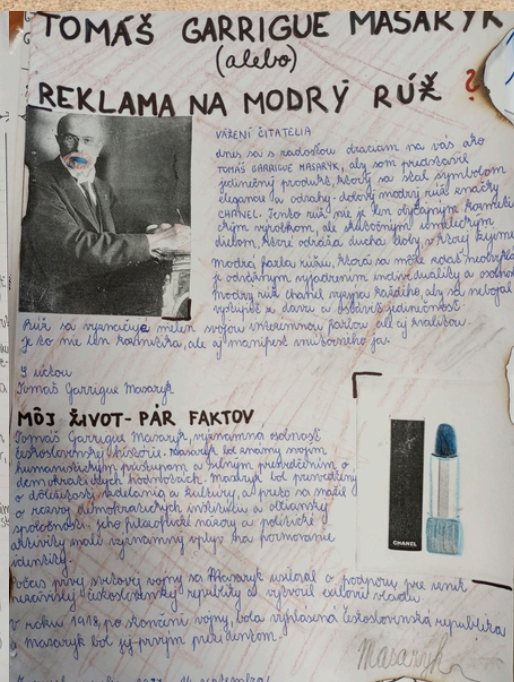 TOMÁŠ GARRIGUE MASARYK
(alebo)
REKLAMA NA MODRÝ RÚŽ ?
VÁŽENÍ ČITATELIA
dnes sa s radosťou obraciam na vás ako
TOMÁŠ GARRIGUE MASARYK, aby som predstavil
jedinečný produkt, ktorý sa stal symbolom
elegancie a odvahy - modrý rúž značky
CHANEL. Tento rúž nie je len obyčajným kozmeti-
ckým výrobkom, ale skutočným umeleckým
dielom, ktoré odráža ducha doby, v ktorej žijeme
Modrá farba rúžu, ktorá sa môže zdať
je odvážnym vyjadrením individuality a
modrý rúž chanel vyzýva každého, aby sa nebojal
vystúpiť z davu a osláviť jedinečnosť.
Rúž sa vyznačuje nielen svojou intenzívnou farbou ale aj kvalitou.
Je to nie len kozmetika, ale aj manifest vnútorného ja.
S úctou
Tomáš Garrigue Masaryk
MÔJ ŽIVOT - PÁR FAKTOV
Tomáš Garrigue Masaryk, významná osobnosť
československej histórie. Masaryk bol známy svojim
humanistickým prístupom a silným presvedčením o
demokratických hodnotách. Masaryk bol presvedčený
o dôležitosti vzdelania a kultúry, a preto sa snažil
o rozvoj demokratických inštitúcií a občianskej
spoločnosti. jeho filozofické názory a politické
aktivity mali významný vplyv na formovanie
identity.
CHANEL
Počas prvej svetovej vojny sa Masaryk usiloval o podporu pre vznik
nezávislej československej republiky a vytvoril exilovú vládu
V roku 1918, po skončení vojny, bola vyhlásená Československá republika
a Masaryk bol jej prvým prezidentom.
Masaryk